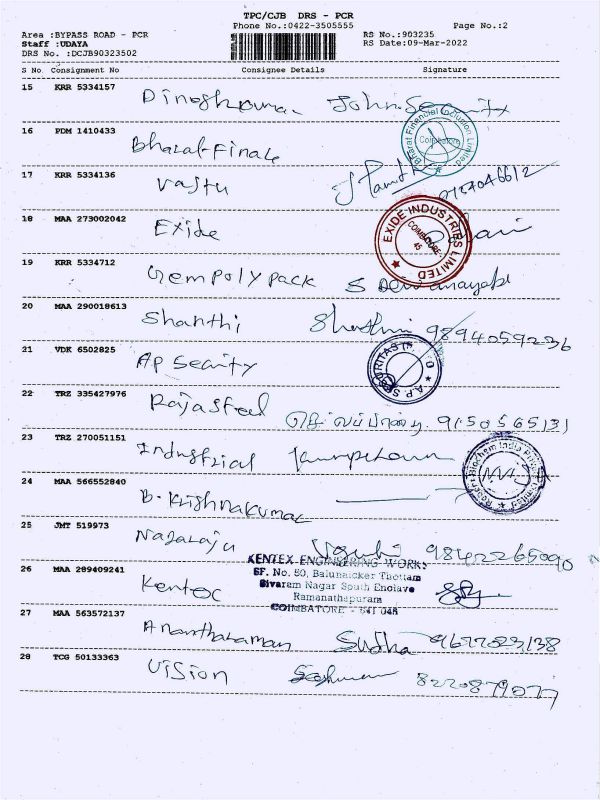 TPC/CJB DRS - PCR
Phone No.:0422-3505555
Page No.:2
Area :BYPASS ROAD - PCR
RS No.:903235
Staff :UDAYA
RS Date:09-Mar-2022
DRS No. :DCJB90323502
S No. Consignment No Consignee Details Signature
15 KRR 5334157
Dineshkumar John Security
16 PDM 1410433
Bharat Finale
Bharat Financial Inclusion Limited
Coimbatore
17 KRR 5334136
Vastu
18 MAA 273002042
Exide
EXIDE INDUSTRIES LIMITED
COIMBATORE-
45
19 KRR 5334712
Gempolypack
20 MAA 290018613
Shanthi 9894059236
21 VDK 6502825
AP Secarity
22 TRZ 335427976
Rajasteel 9150565131
23 TRZ 270051151
Industrial
24 MAA 566552840
B. Krishnakumar
25 JMT 519973
Nagaraju 9842265090
KENTEX ENGINEERING WORKS
SF. No. 50, Balunaicker Thottam
Sivaram Nagar South Enclave
Ramanathapuram
COIMBATORE - 641 045
26 MAA 289409241
Kentec
27 MAA 563572137
Ananthalaman Sudha 9677023138
28 TCG 50133363
Vision 8220879077